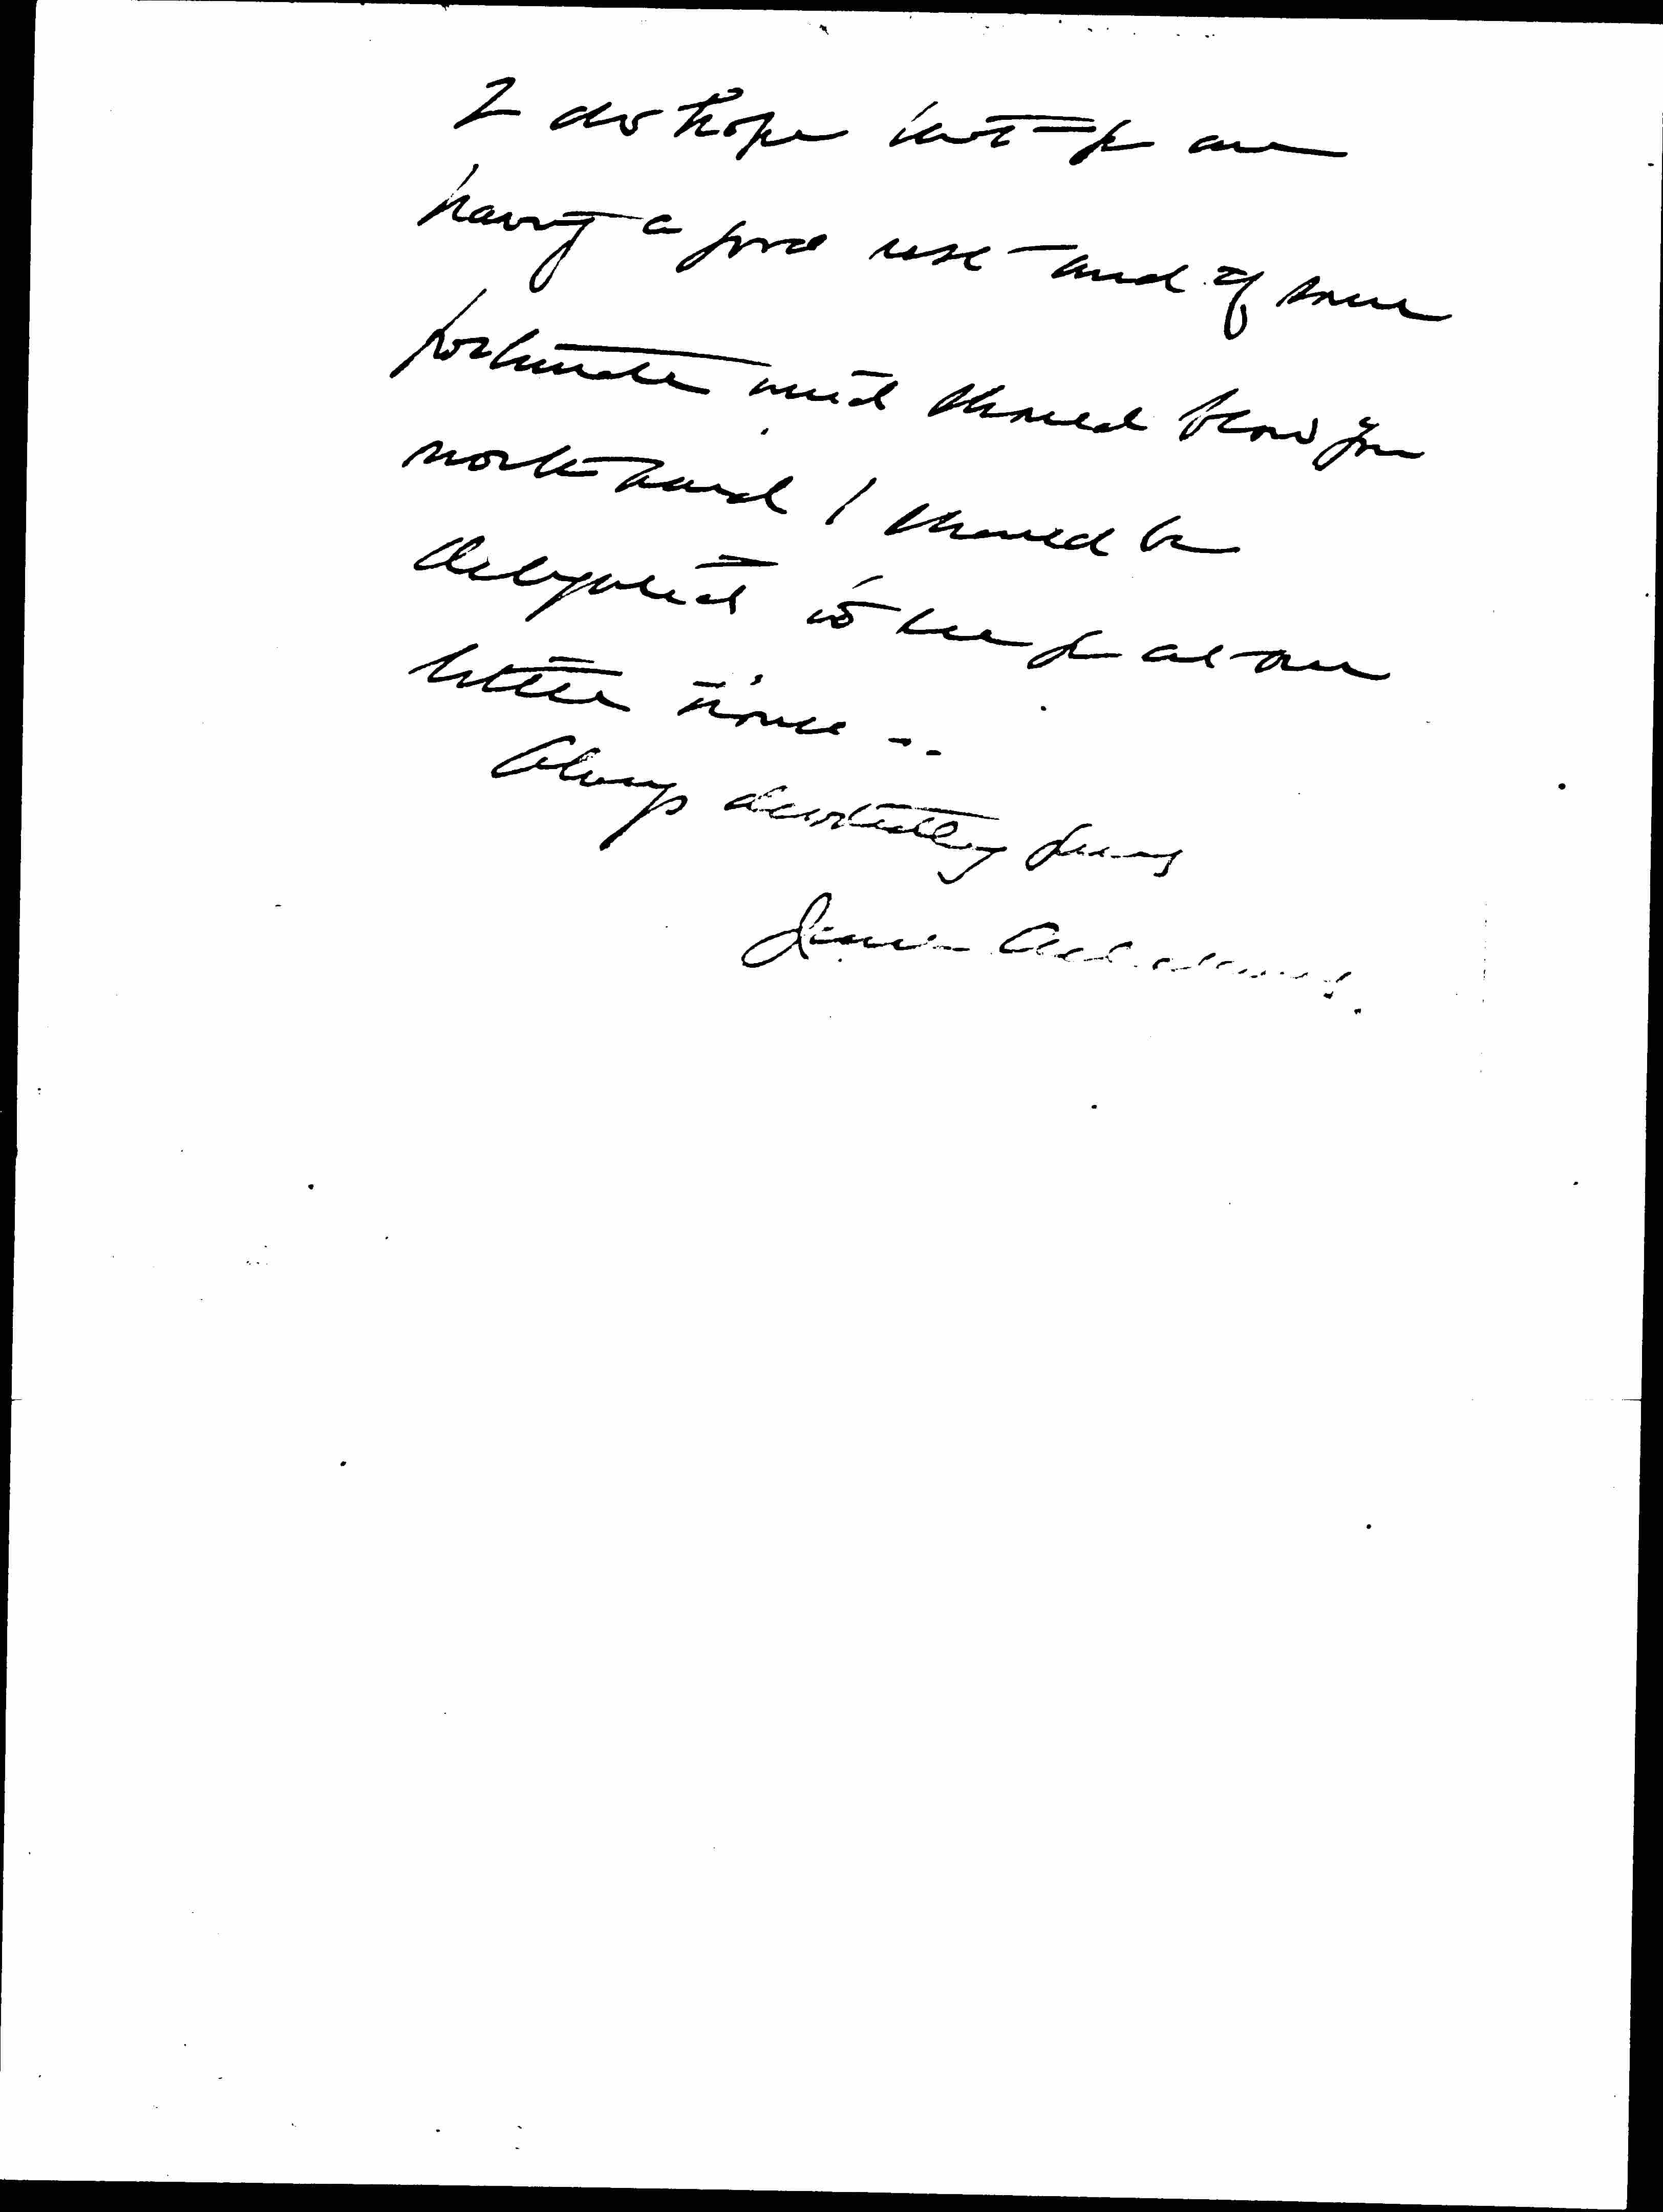 I do hope that you are
having a good rest and if some
fortunate wind should blow you
northward I should be
delighted to see you at our
little house --
Always devotedly yours
Jane Addams.